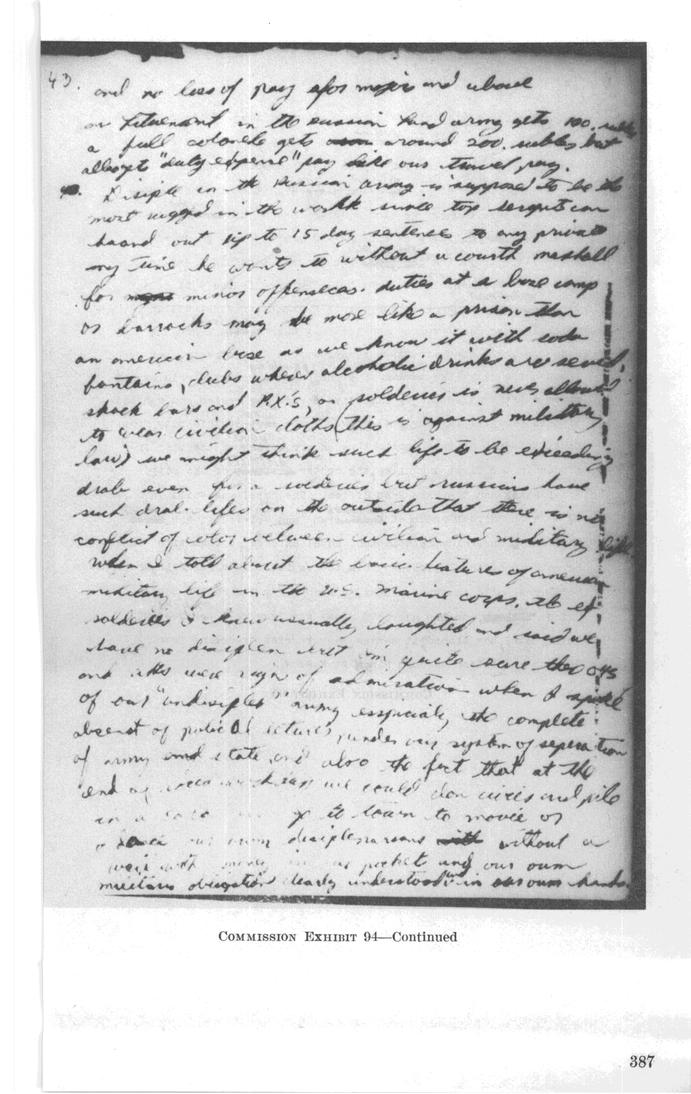 43.
and no loss of pay afor major and above
an lituenant in the russian land army gets 100. rubles
a full colonele gets around 200. rubles but
all get "duty expense" pay like our travel pay.
Disiple in the Russian army is supposed to be the
most rugged in the world since top sergents can
haand out up to 15 day sentence to any private
any time he wants to without a courth mashall
for minior offensecas. duties at a base camp
or barrocks may be more like a prison than
an american base as we know it with soda
fontains, clubs where alcoholic drinks are served,
snack bars and P.X.'s, on soldeies is never allowed
to wear civilian cloths (this is against military
law) we might think such life to be exceeding
drab even for a soldeies but russians have
such drab lifes on the outside that there is no
conflict of color between civilian and military life.
when I told about the basic features of american
military life in the U.S. Marine corps, the ex
soldeies I knew usually laughted and said we
have no disciplen but I'm quite sure the
and were sign of admiration when I spoke
of our "undisiples" army esspicialy the complete
absent of political lectures under our system of seperation
of army and state, and also the fact that at the
end of we could don civies and pile
in a it town to movie or
a our disciplenarsons without a
with money in our pockets and our own
military obligation clearly understood and in our own hands.
COMMISSION EXHIBIT 94—Continued
387